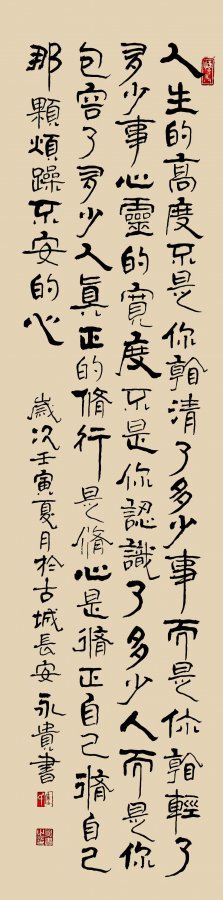 人生的高度不是你看清了多少事而是你看輕了
多少事心靈的寬度不是你認識了多少人而是你
包容了多少人真正的脩行是脩心是脩正自己脩自己
那顆煩躁不安的心
歲次壬寅夏月於古城長安永貴書